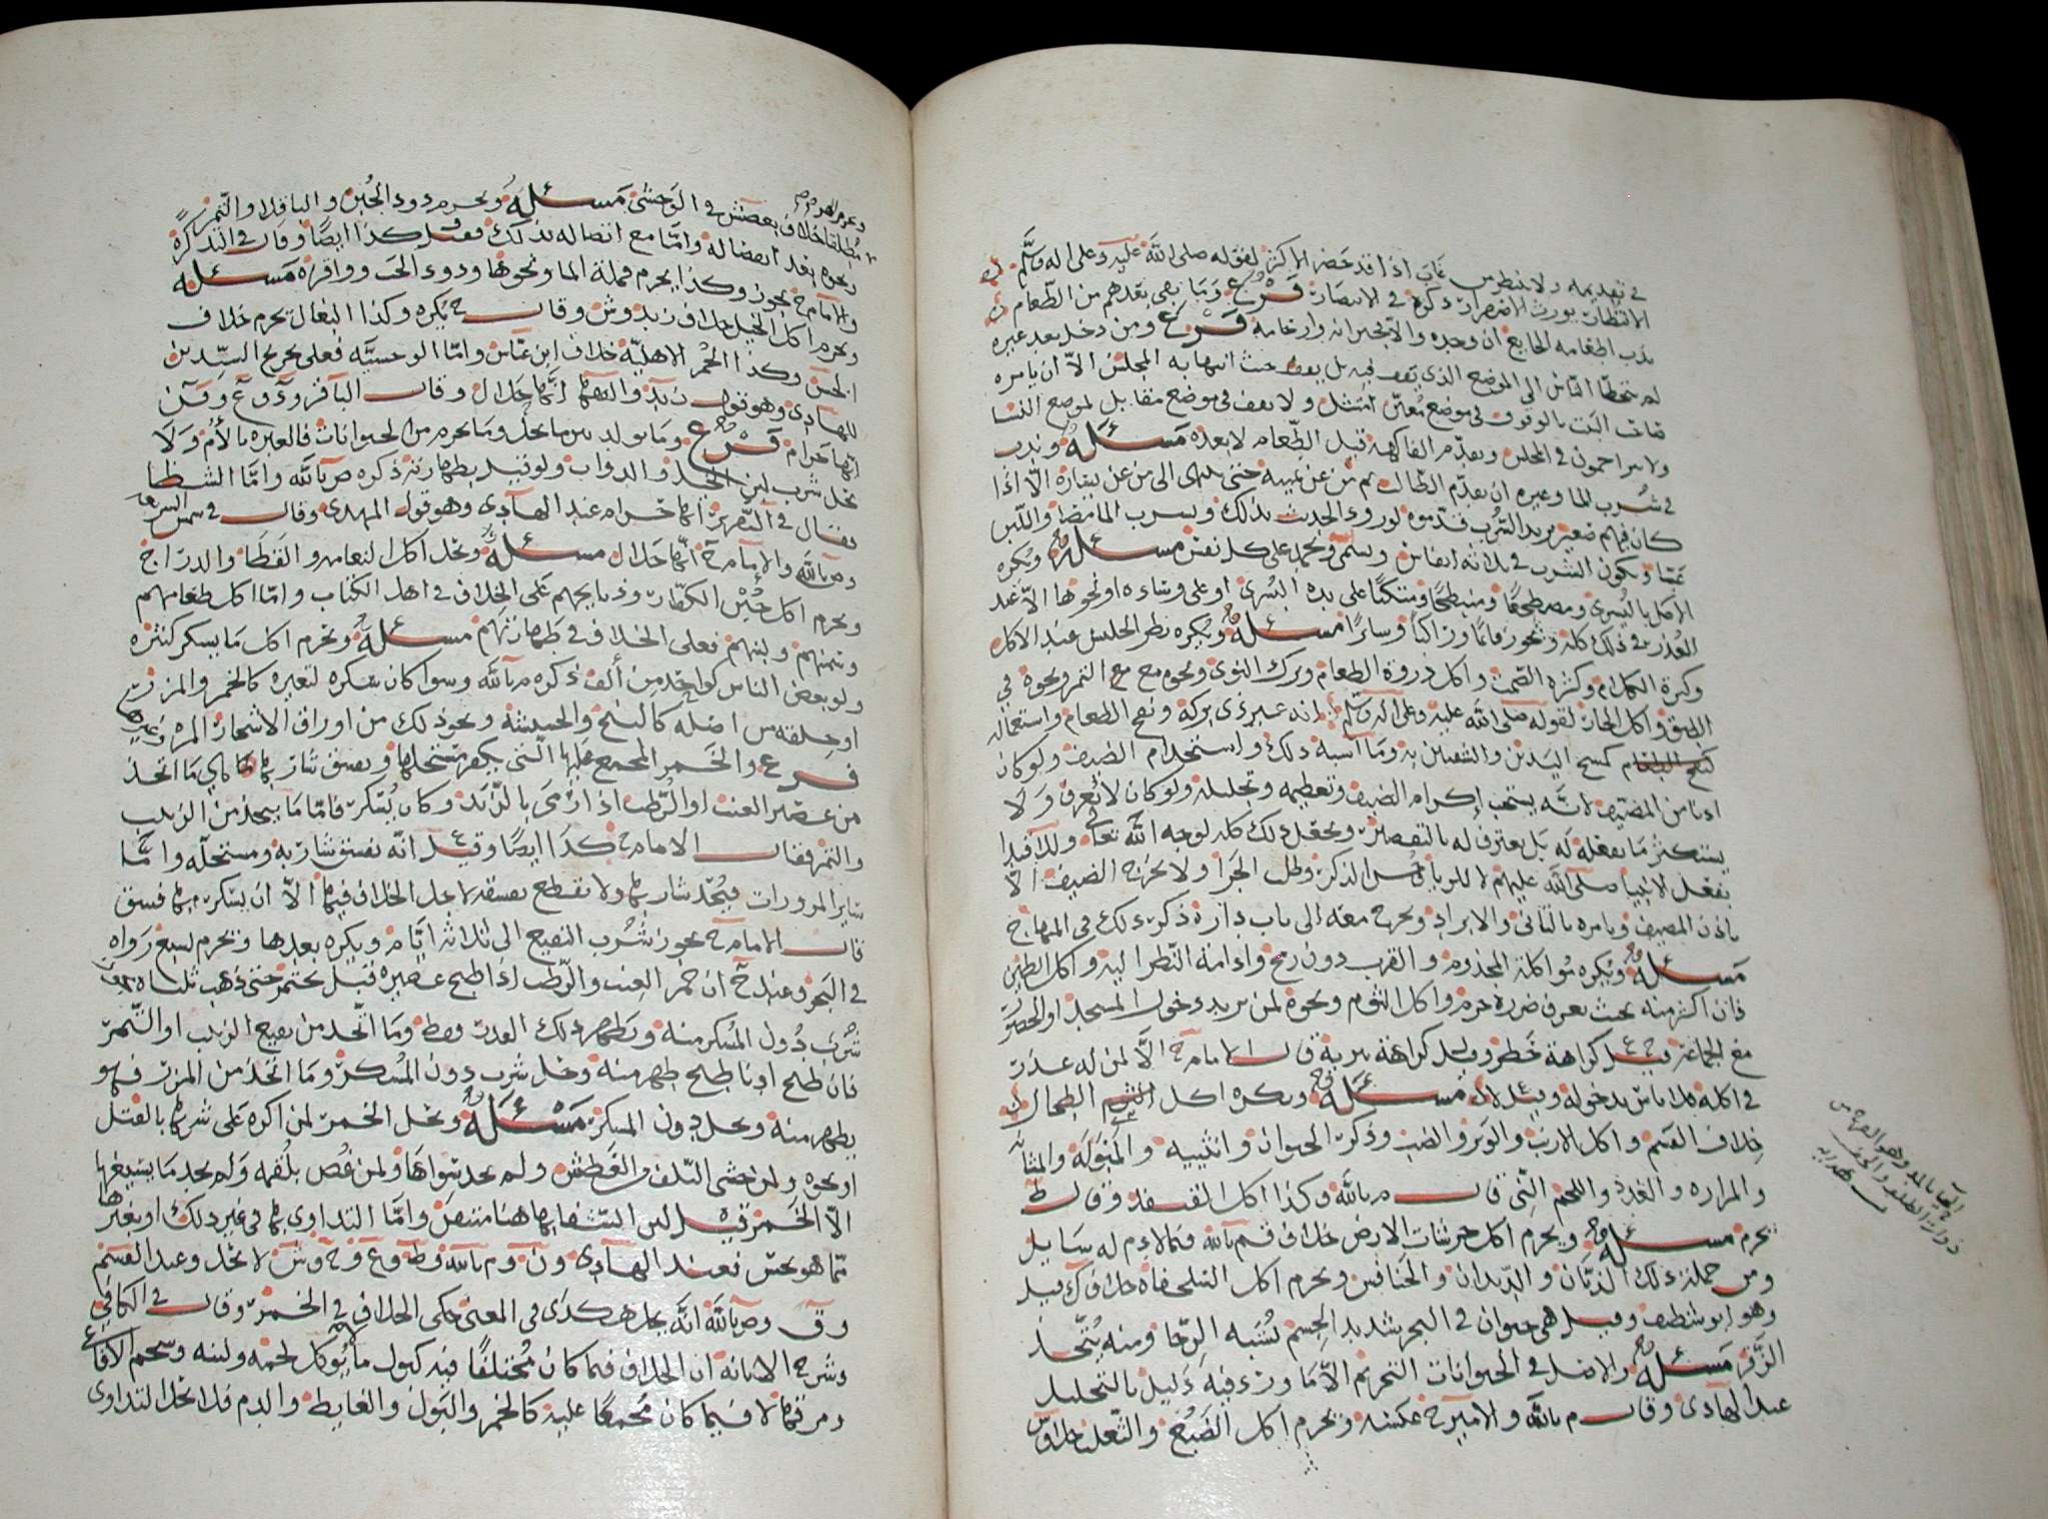 في تقديمه ولا ينتظر من غاب اذا قد حضر الاكثر لقوله صلى الله عليه وعلى اله وسلم
الانتظار يورث الاصفرار ذكره في الانتصار فرع وما بقي بعدهم من الطعام
ندب اطعامه الجايع ان وجده والا وارحامه فرع ومن دخل بعد غيره
لم يتخطا الناس الى الموضع الذي يقف فيه بل يقف حيث انتها به المجلس الا ان يامره
صاحب البيت بالوقوف في موضع معين امتثل ولا يقف في موضع مقابل لموضع النسا
ولا يتزاحمون في المجلس ويقدم الفاكهة قبل الطعام لا بعده مسئلة وندب
في شرب الما وغيره ان يقدم الطالب ثم من عن يمينه حتى ينتهى الى من عن يساره الا اذا
كان فيهم صغير يريد الشرب قدموه لورود الحديث بذلك ويشرب الما مصا واللبن
عبا ويكون الشرب في ثلاثه انفاس ويسمي ويحمد على كل نفس مسئلة ويكره
الاكل باليسرى ومضطجعا ومنبطحا ومتكئا على يده اليسرى او على وساده او نحوها الا عند
العذر في ذلك كله ويجوز قايما وراكبا وسايرا مسئلة ويكره نظر الجليس عند الاكل
وكثرة الكلام وكثرة الصمت واكل ذروة الطعام وترك النوى ونحوه مع التمر ونحوه في
الطبق واكل الحار لقوله صلى الله عليه وعلى اله وسلم انه غير ذي بركة ونفخ الطعام واستعماله
كمسح اليدين والشفتين به وما اشبه ذلك واستخدام الضيف ولو كان
ادنا من المضيف لانه يستحب اكرام الضيف وتعظيمه وتجليله ولو كان لا يعرف ولا
يستكثر ما يفعله له بل يعترف له بالتقصير ويجعل ذلك كله لوجه الله تعالى ولذا قيل
يفعل الانبيا صلى الله عليهم لا للريا وحسن الذكر وطلب الجزا ولا يخرج الضيف الا
باذن المضيف ويامره بالتاني والابراد ويخرج معه الى باب داره ذكر ذلك في المنهاج
مسئلة ويكره مواكلة المجذوم والقرب دون رمح وادامة النظر اليه واكل الطين
فان اكثر منه بحيث يعرف ضرره حرم واكل الثوم ونحوه لمن يريد دخول المسجد او الحضور
مع الجماعة قيل ع كراهة حظر وقيل كراهة تنزيه قال الامام ح الا لمن له عذر
في اكله فلا باس بدخوله وقيل لا مسئلة ويكره اكل الطحال
خلاف القسم واكل الارنب والوبر والضب وذكر الحيوان وانثييه والمبوله والمثانه
والمراره والغدد واللحم الني قال م بالله وكذا اكل القنفذ وقال ط
يحرم مسئلة ويحرم اكل حرشات الارض خلاف ق م بالله فيما لا دم له سايل
ومن جملة ذلك الذبان والديدان والخنافس ويحرم اكل السلحفاه خلاف ك قيل
وهو ابو شظيف وقيل هي حيوان في البحر شديد الجسم تشبه الرحا ومنه يتخذ
الزقر مسئلة والاصل في الحيوانات التحريم الا ما ورد فيه دليل بالتحليل
عند الهادي وقال م بالله والامير ح عكسه ويحرم اكل الضبع والثعلب خلاف
خلاف بعض ش في الوحشي مسئلة ويحرم دود الجبن والباقلا والتمر
ونحوه بعد انفصاله واما مع اتصاله بذلك فقيل كذا ايضا وقال في التذكرة
والامام ح يجوز وكذا يحرم قملة الما ونحوها ودود الحب ووافره مسئلة
ويحرم اكل الخيل خلاف زيد و ش وقال ح يكره وكذا البغال تحرم خلاف
الحسن وكذا الحمر الاهلية خلاف ابن عباس واما الوحشيه فعلى تخريج السيدين
للهادي وهو قول زيد والفقها انها حلال وقال الباقر
انها حرام فرع وما تولد بين ما يحل وما يحرم من الحيوانات فالعبره بالام ولا
يحل شرب لبن الخيل والدواب ولو قيل بطهارته ذكره ص بالله واما الشظا
يقال في التحرير انها حرام عند الهادي وهو قول المهدي وقال في شمس الشريعه
وص بالله والامام ح انها حلال مسئلة ويحل اكل النعامه والقطا والدراج
ويحرم اكل خبز الكفار وذبايحهم على الخلاف في اهل الكتاب واما اكل طعامهم
وسمنهم ولبنهم فعلى الخلاف في طهارتهم مسئلة ويحرم اكل ما يسكر كثيره
ولو بعض الناس كواحد من ألف ذكره م بالله وسوا كان سكره لتغيره كالخمر والمزر
او خلقه من اصله كالبنج والحشيشة ونحو ذلك من اوراق الاشجار المره وغيرها
فرع والخمر المجمع عليها التي يكفر مستحلها ويفسق شاربها هي ما اتخذ
من عصير العنب او الرطب اذا رمى بالزبد وكان يسكر فاما ما يتخذ من الزبيب
والتمر فقال الامام ح كذا ايضا وقيل ع انه يفسق شاربه ومستحله واما
ساير المزورات فيحد شاربها ولا نقطع بفسقه لاجل الخلاف فيها الا ان يسكر بها فسق
قال الامام ح يجوز شرب النقيع الى ثلاثه ايام ويكره بعدها ويحرم لسبع رواه
في البحر وعند ح ان خمر العنب والرطب اذا طبخ عصيره قبل يختمر حتى ذهب ثلثاه
شرب دون المسكر منه ويطهر ذلك القدر فقط وما اتخذ من نقيع الزبيب او التمر
فان طبخ ادنا طبخ طهر منه وحل شرب دون المسكر وما اتخذ من المزر فهو
يطهر منه ويحل دون المسكر مسئلة ويحل الخمر لمن اكره على شربها بالقتل
او نحوه ولمن خشى التلف والعطش ولم يجد سواها ولمن غص بلقمه ولم يجد ما يسيغها
الا الخمر قيل ليس الشفا بها هنا متيقن واما التداوى بها في غير ذلك او بغيرها
مما هو نجس فعند الهادي و ن و م بالله و ط و ع و ح و ش لا يحل وعند القسم
و ق وص بالله انه يحل هكذى في المعنى حكى الخلاف في الخمر وقال في الكافي
وشرح الابانه ان الخلاف فيما كان مختلفا فيه كبول ما يوكل لحمه ولبنه وسحم الافاعي
ومرقها لا فيما كان مجمعا عليه كالخمر والبول والغايط والدم فلا يحل التداوى